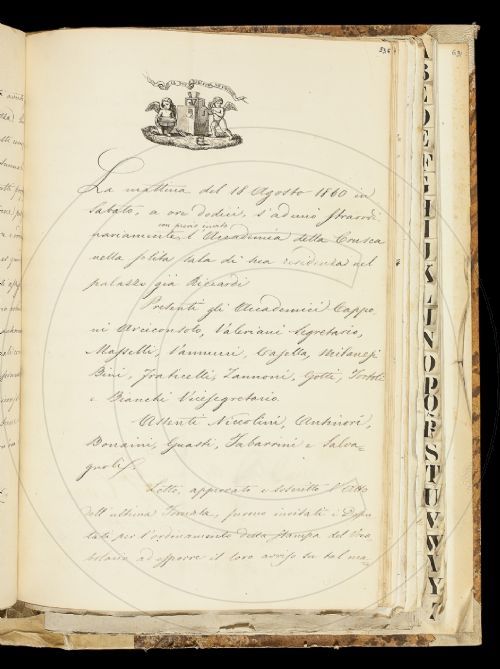 536
La mattina del 18 Agosto 1860 in
Sabato, a ore dodici, s'adunò straordi
con previo invito
nariamente l'Accademia della Crusca
nella solita sala di sua residenza nel
palazzo già Riccardi
Presenti gli Accademici Cappo,
ni Arciconsolo, Valeriani Segretario,
Masselli, Vannucci, Casella, Milanesi
Bini, Fraticelli, Zannoni, Gotti, Tortoli
e Bianchi Vicesegretario.
Assenti Niccolini, Antinori,
Bonaini, Guasti, Tabarrini e Salva-
gnoli.
Letto, approvato e soscritto l'Atto
dell'ultima Tornata, furono invitati i Depu
tati per l'ordinamento della stampa del Voca
bolario ad esporre il loro avviso su tal ma,
A
B
C
D
E
F
G
H
I
J
K
L
N
O
P
Q
R
S
T
U
V
W
Y
Z